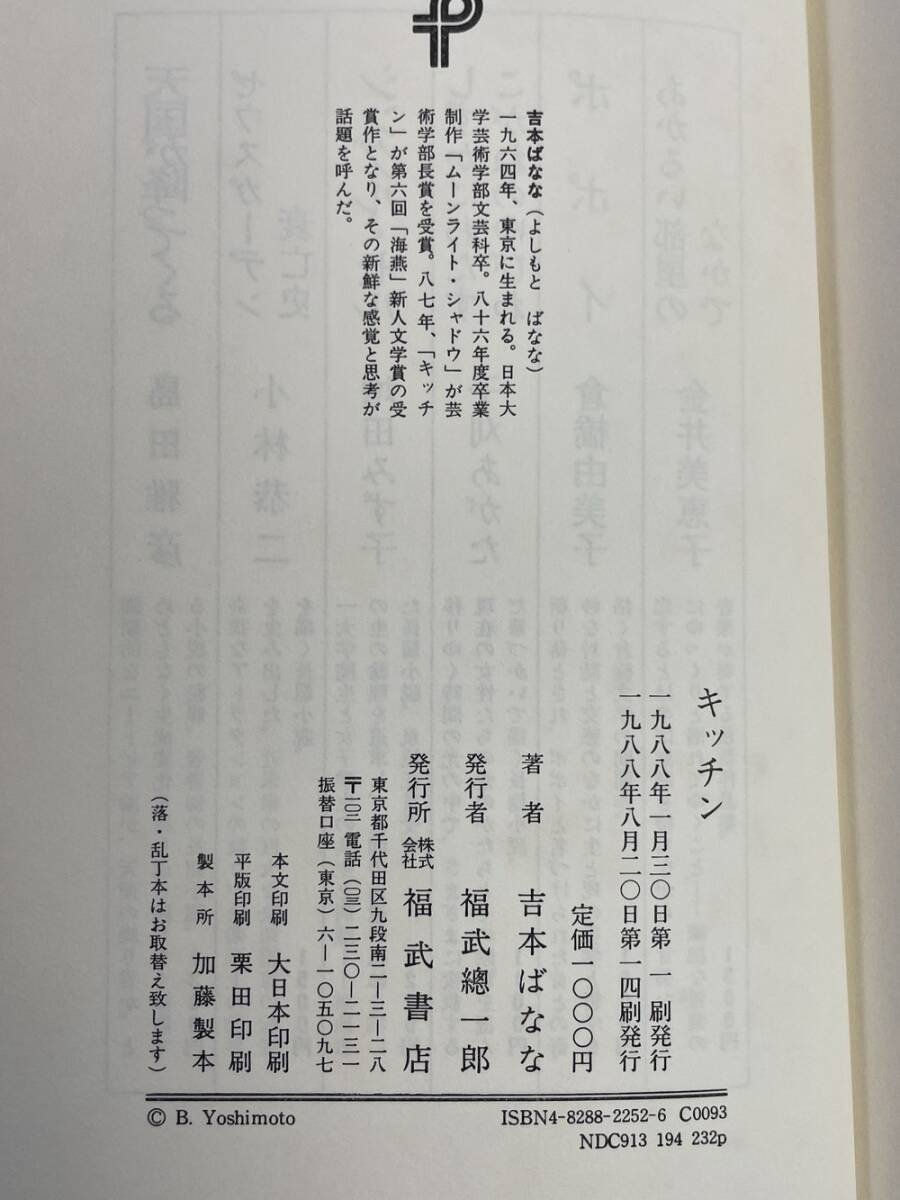 吉本ばなな（よしもと　ばなな）
一九六四年、東京に生まれる。日本大
学芸術学部文芸科卒。八十六年度卒業
制作「ムーンライト・シャドウ」が芸
術学部長賞を受賞。八七年、「キッチ
ン」が第六回「海燕」新人文学賞の受
賞作となり、その新鮮な感覚と思考が
話題を呼んだ。
キッチン
一九八八年一月三〇日第一刷発行
一九八八年八月二〇日第一四刷発行
定価一〇〇〇円
著者　吉本ばなな
発行者　福武總一郎
発行所　株式会社　福武書店
東京都千代田区九段南二―三―二八
〒一〇二 電話（〇三）二三〇―二一三一
振替口座（東京）六―一〇五〇九七
本文印刷　大日本印刷
平版印刷　栗田印刷
製本所　加藤製本
（落・乱丁本はお取替え致します）
© B. Yoshimoto
ISBN4-8288-2252-6 C0093
NDC913 194 232p